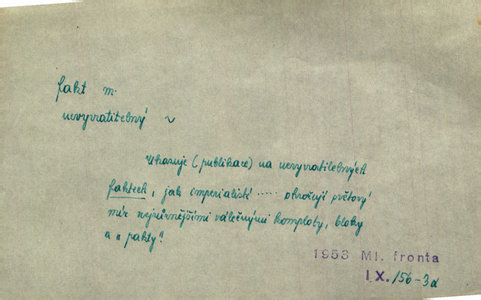 fakt m.
nevyvratitelný ~
Ukazuje (publikace) na nevyvratitelných
faktech, jak imperialisté ..... ohrožují světový
mír nejrůznějšími válečnými komploty, bloky
a „pakty“.
1953 Ml. fronta
IX./56-3d